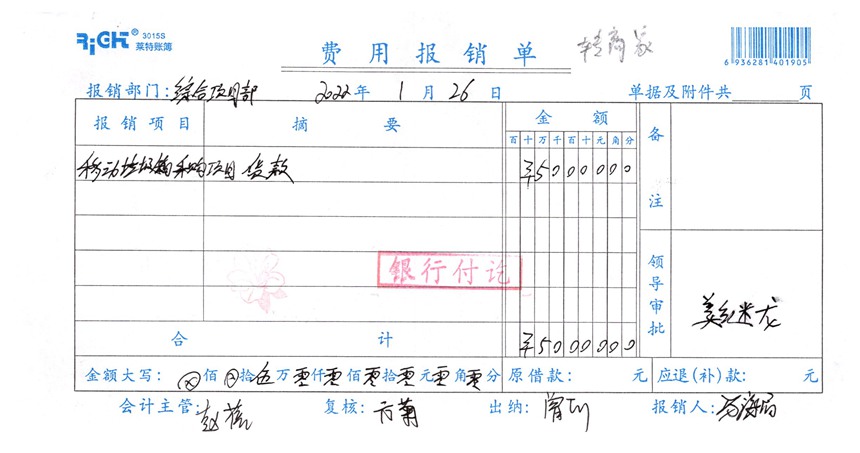 RiGHT® 3015S
莱特账簿
费用报销单
转商家
6 936281 401905
报销部门:综合项目部 2022年 1月 26日 单据及附件共 页
报销项目 摘要 金额 备注
百十万千百十元角分
移动垃圾箱采购项目货款 ¥5000000
银行付讫
领导审批
合计 ¥5000000
金额大写: ⊗佰⊗拾伍万零仟零佰零拾零元零角零分 原借款: 元 应退(补)款: 元
会计主管: 复核: 出纳: 报销人: